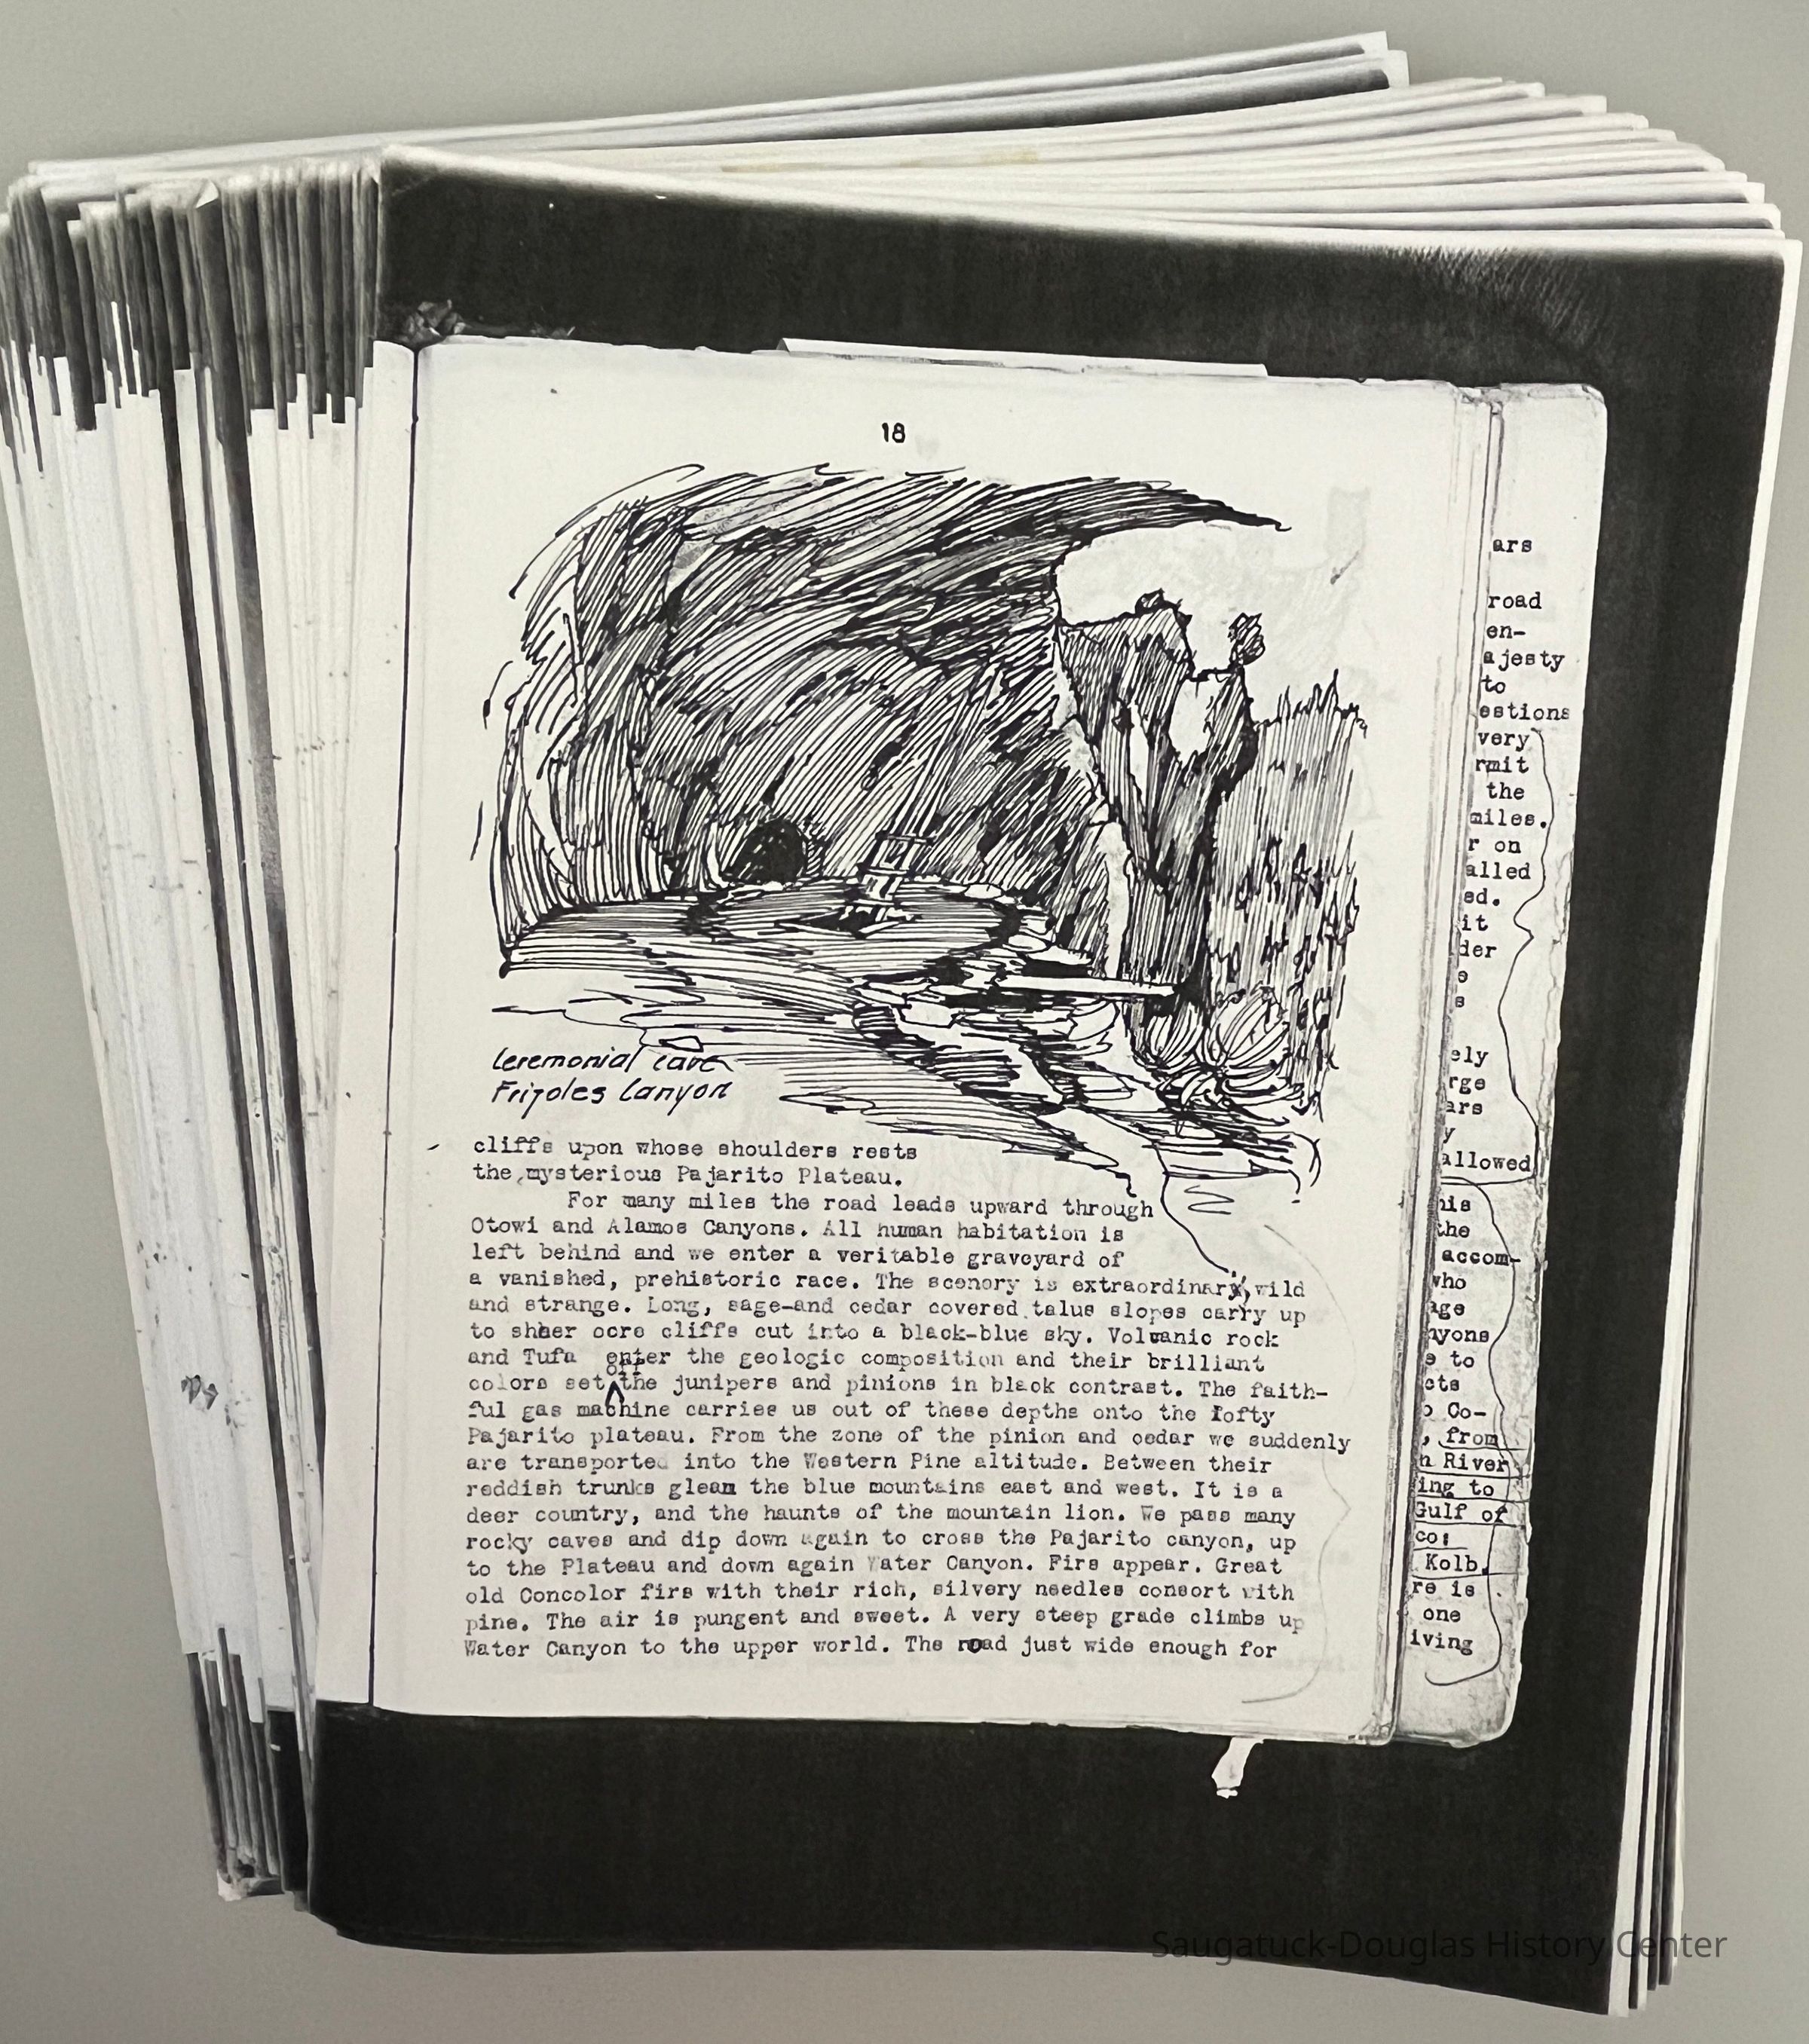 18
Ceremonial cave
Frijoles Canyon
cliffs upon whose shoulders rests
the mysterious Pajarito Plateau.
For many miles the road leads upward through
Otowi and Alamos Canyons. All human habitation is
left behind and we enter a veritable graveyard of
a vanished, prehistoric race. The scenery is extraordinary, wild
and strange. Long, sage-and cedar covered talus slopes carry up
to sheer ocre cliffs cut into a black-blue sky. Volcanic rock
and Tufa enter the geologic composition and their brilliant
off
colors set the junipers and pinions in black contrast. The faith-
ful gas machine carries us out of these depths onto the lofty
Pajarito plateau. From the zone of the pinion and cedar we suddenly
are transported into the Western Pine altitude. Between their
reddish trunks gleam the blue mountains east and west. It is a
deer country, and the haunts of the mountain lion. We pass many
rocky caves and dip down again to cross the Pajarito canyon, up
to the Plateau and down again Water Canyon. Firs appear. Great
old Concolor firs with their rich, silvery needles consort with
pine. The air is pungent and sweet. A very steep grade climbs up
Water Canyon to the upper world. The road just wide enough for
ars
road
en-
ajesty
to
estions
very
rmit
the
miles.
r on
alled
ed.
it
der
e
s
ely
rge
ars
y
allowed
his
the
accom-
who
age
nyons
e to
cts
o Co-
, from
n River
ing to
Gulf of
co:
Kolb.
re is
one
iving
Saugatuck-Douglas History Center